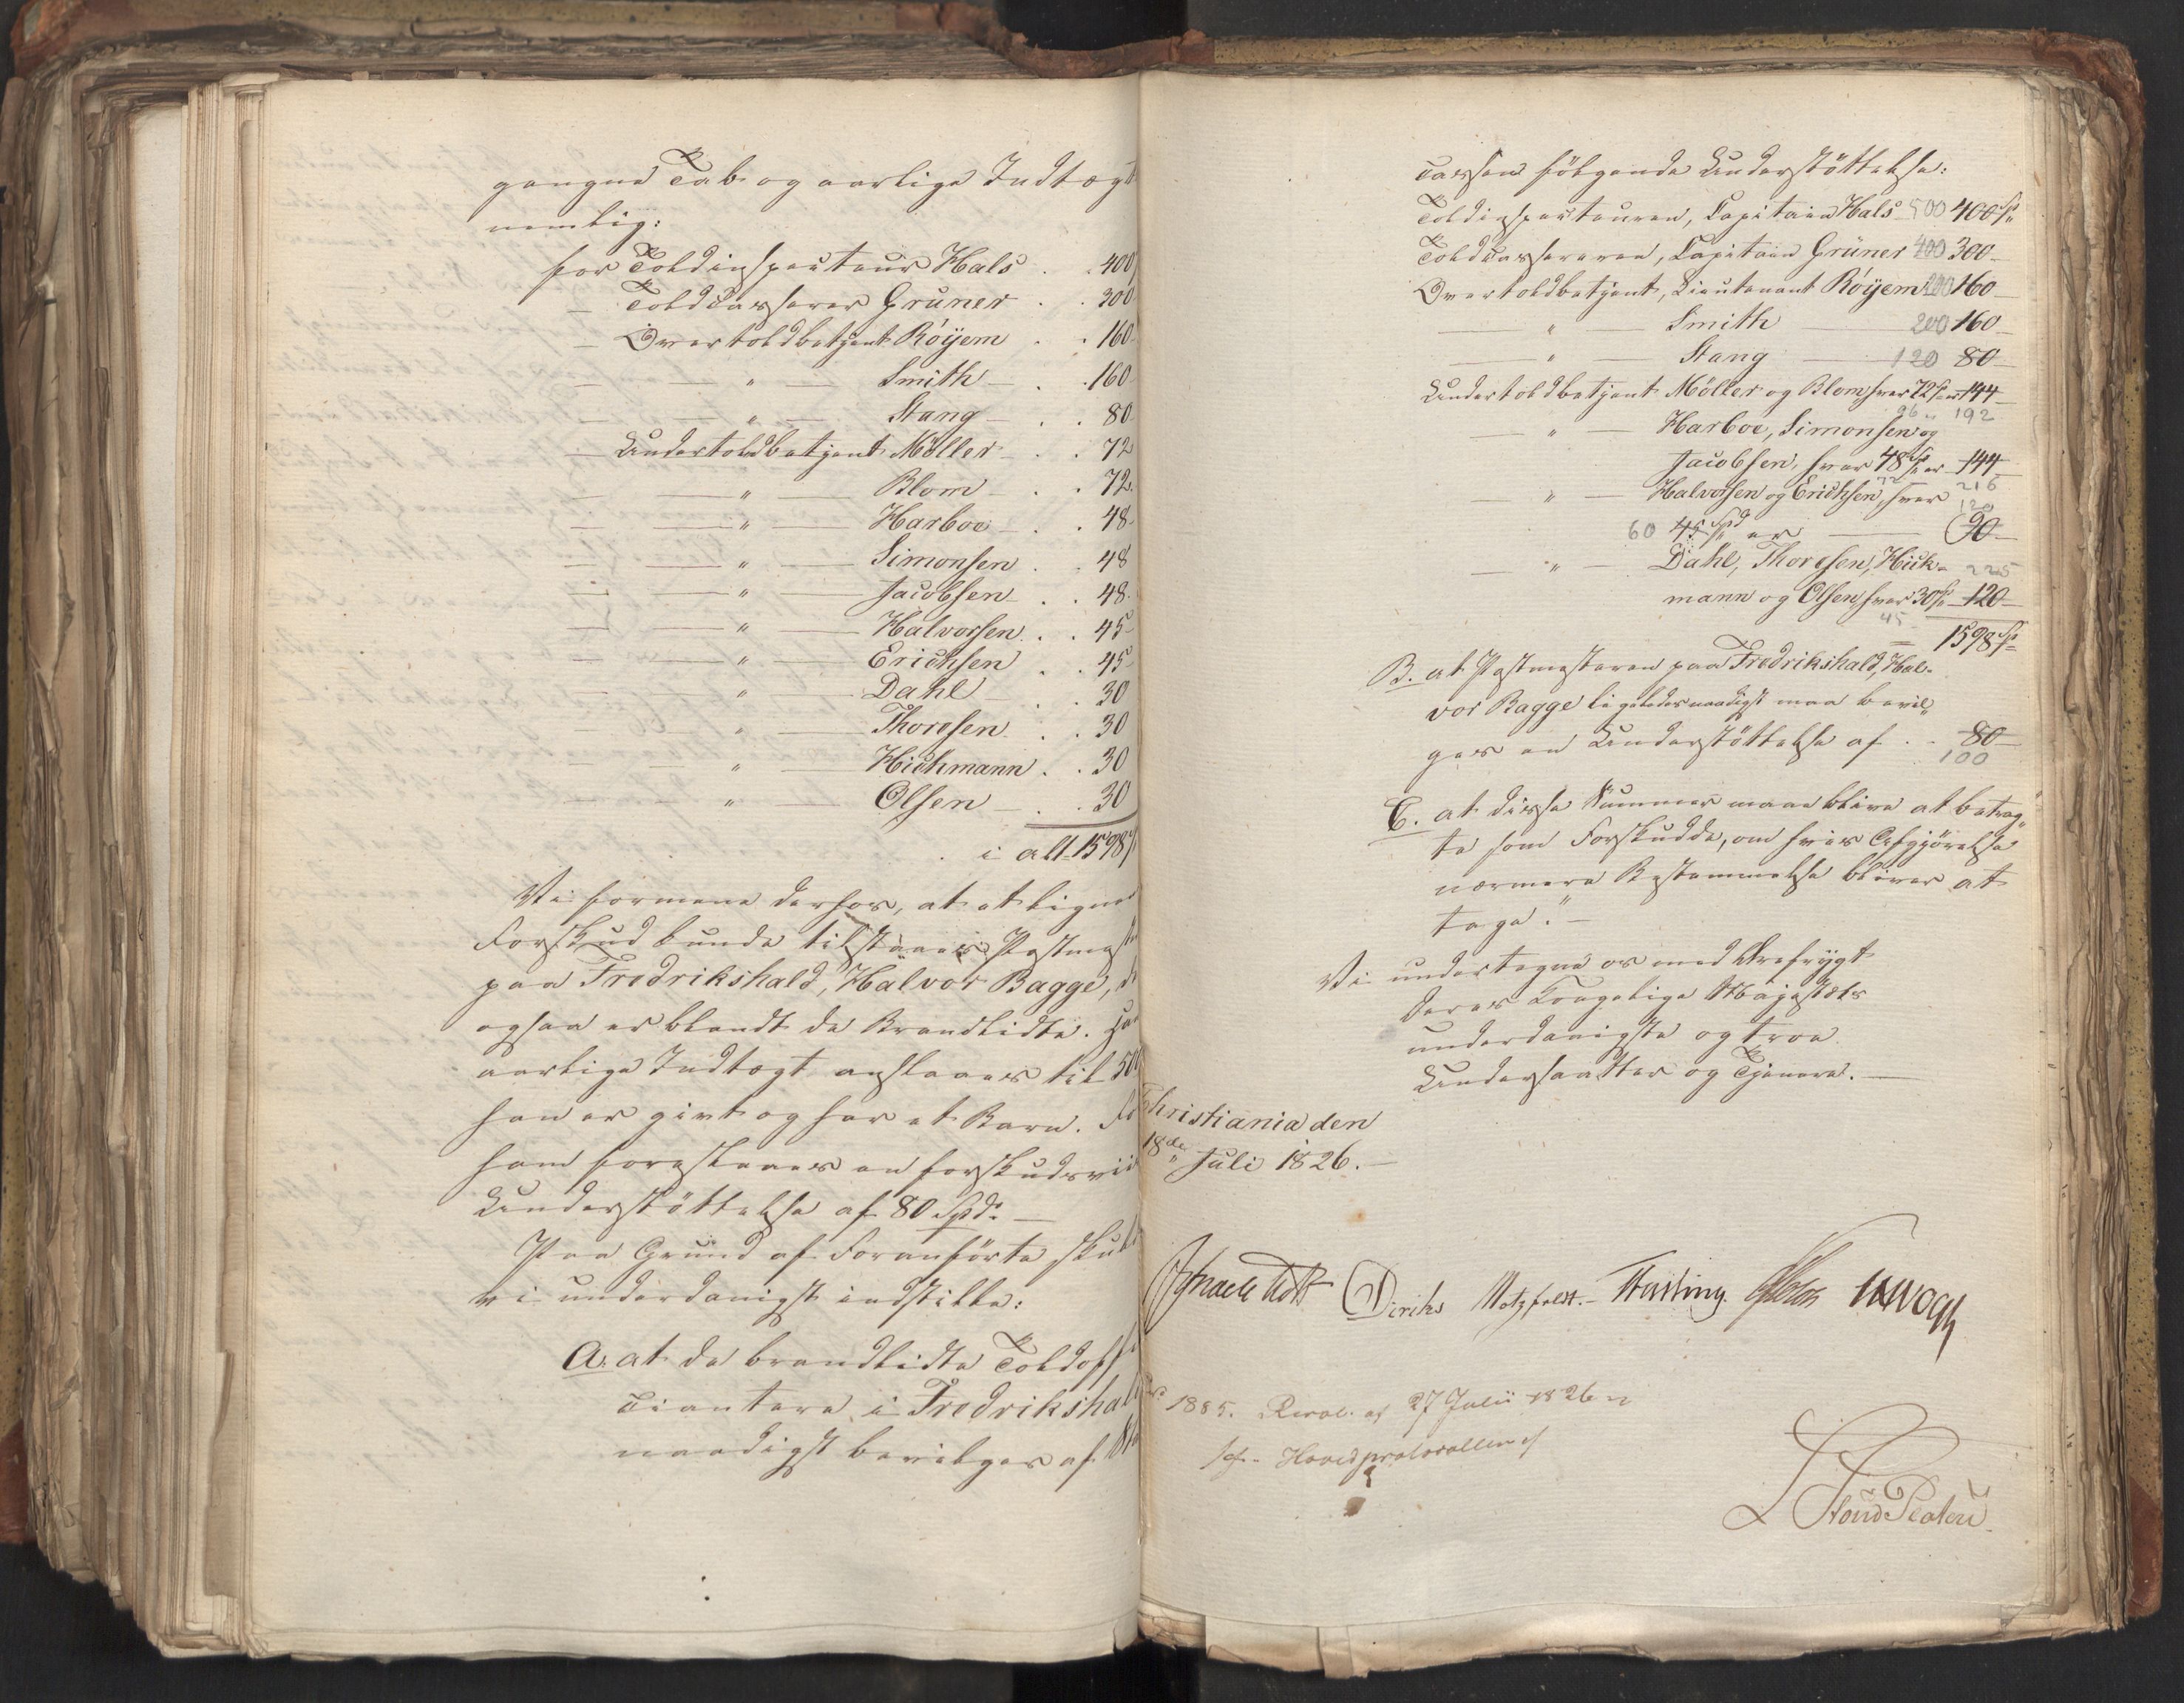 gangne Tab og aarlige Indtægt
nemlig:
for Toldinspecteur Hals . . 400
— Toldcasserer Grüner . . 300
— Overtoldbetjent Röyem . . 160
— — " — Smith — . . 160
— — " — Stang — . . 80
— Undertoldbetjent Möller — . . 72
— — " — Blom — . . 72
— — " — Harboe — . . 48
— — " — Simonsen . . 48
— — " — Jacobsen . . 48
— — " — Halvorsen . . 45
— — " — Erichsen . . 45
— — " — Dahl . . 30
— — " — Thoresen . . 30
— — " — Hichmann . . 30
— — " — Olsen — . . 30
i alt 1598
Vi formene derfor, at et lignende
Forskud bunde tilstaaes Postmest
paa Fredrikshald, Halvor Bagge, d
ogsaa er blandt de Brandlidte. Han
aarlige Indtægt anslaaes til 500
han er givt og har et Barn. Fo
ham foreslaaes en forskudsviis
Understöttelse af 80 Spd. —
Paa Grund af Foranförte skulle
vi underdanigst indstille:
A. at de brandlidte Toldoffi
ciantere i Fredrikshald
naadigst bevilges af
cassen fölgende Understöttelse:
Toldinspecteuren, Capitain Hals 500 400 Sp
Toldcassereren, Capitain Grüner 400 300 —
Overtoldbetjent, Lieutenant Röyem 200 160 —
— " — Smith 200 160 —
— " — Stang — 120 80 —
Undertoldbetjent Möller og Blom, hver 72 Sp er 144 —
96 192
— " — Harboe, Simonsen og
Jacobsen, hver 48 Sp er 144 —
— " — Halvorsen og Erichsen, hver 72 216
60 45 Spd er — 90 — 120
— " — Dahl, Thoresen, Hick- 225
mann og Olsen, hver 30 Sp 120 —
45
= 1598 Sp
B. at Postmesteren paa Fredrikshald, Hal-
vor Bagge ligeledes naadigst maa bevil„
ges en Understöttelse af . . 80 —
100
C. at disse Summer maae blive at betrag„
te som Forskudde, om hvis Afgjörelse
nærmere Bestemmelse bliver at
tage." —
Vi undertegne os med Ærefrygt
Deres Kongelige Majestæts
underdanigste og troe
Undersaatter og Tjenere. —
Christiania den
18de Juli 1826. —
Diriks Motzfeldt. Fasting. Holst JHVogt
No 1885. Resol. af 27 Julii 1826
/cf. Hovedprotocollen/